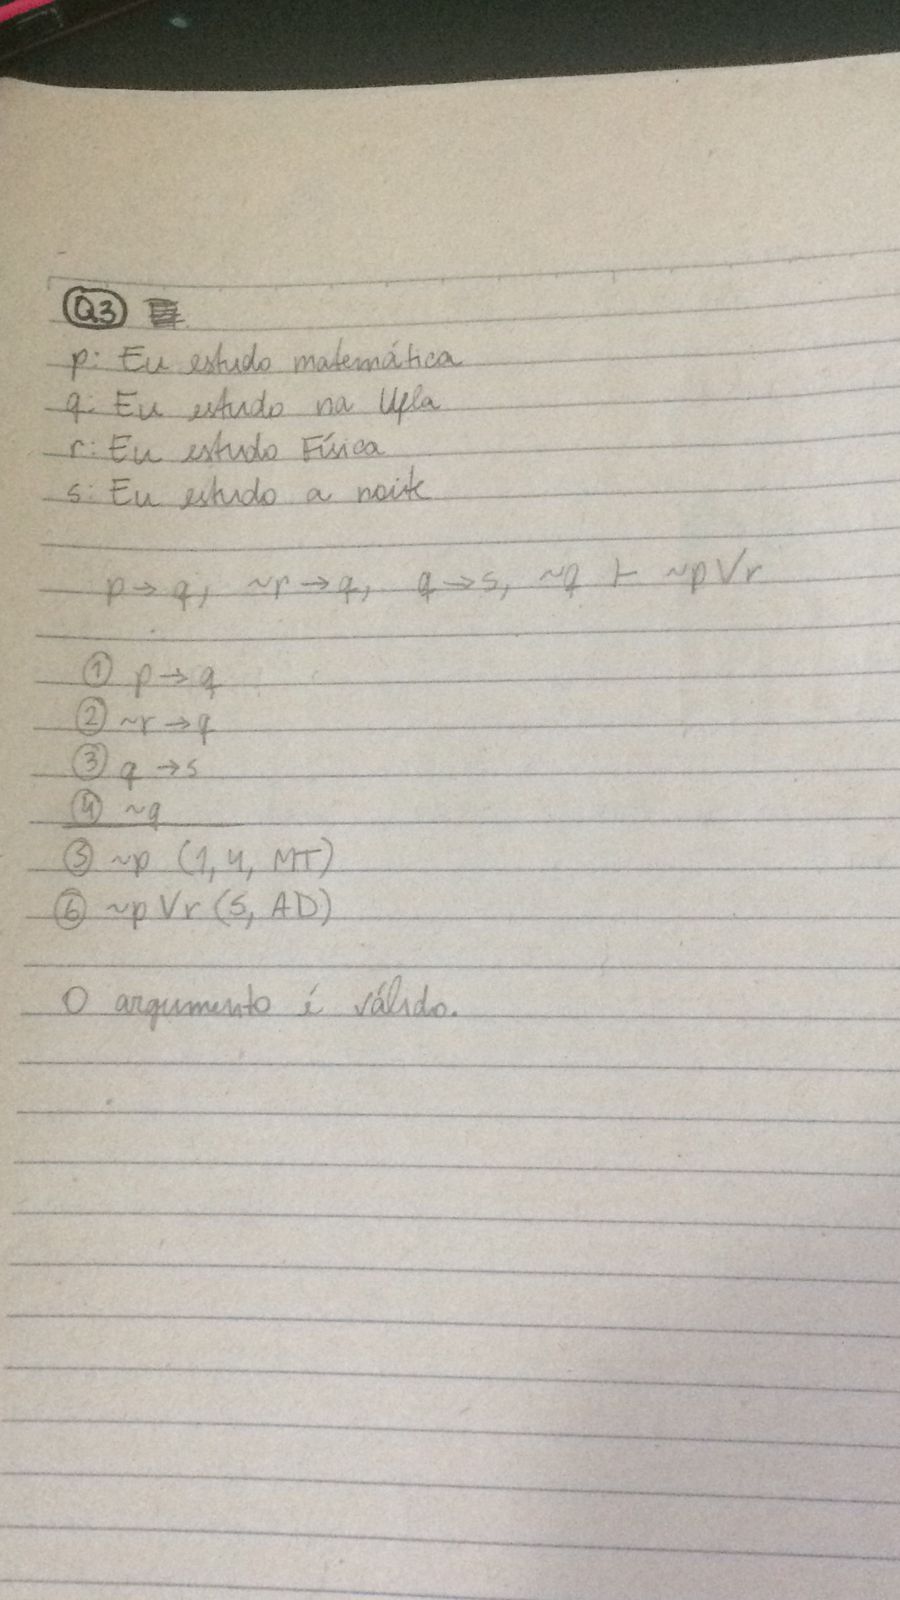 Q3
p: Eu estudo matemática
q: Eu estudo na Ufla
r: Eu estudo Física
s: Eu estudo a noite
p → q, ~r → q, q → s, ~q ⊢ ~p V r
① p → q
② ~r → q
③ q → s
④ ~q
⑤ ~p (1, 4, MT)
⑥ ~p V r (5, AD)
O argumento é válido.